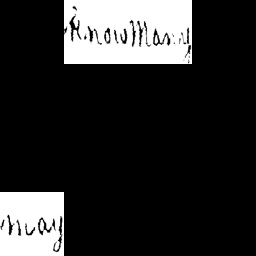 know Many
may